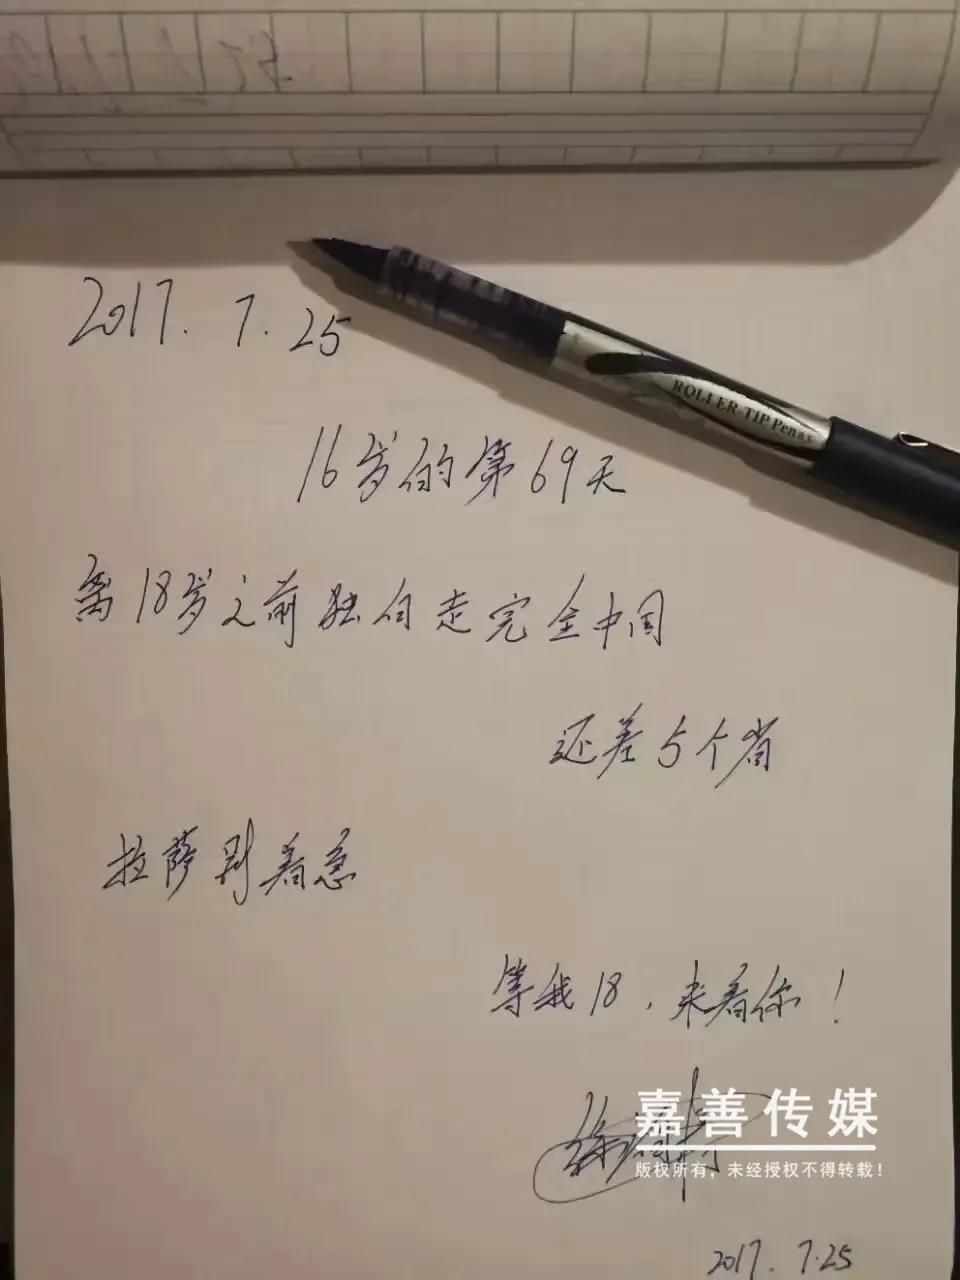 2017.7.25
ROLLER-TIP Pen
16岁的第69天
离18岁之前独自走完全中国
还差5个省
拉萨别着急
等我18，来看你！
嘉善传媒
版权所有，未经授权不得转载！
2017.7.25